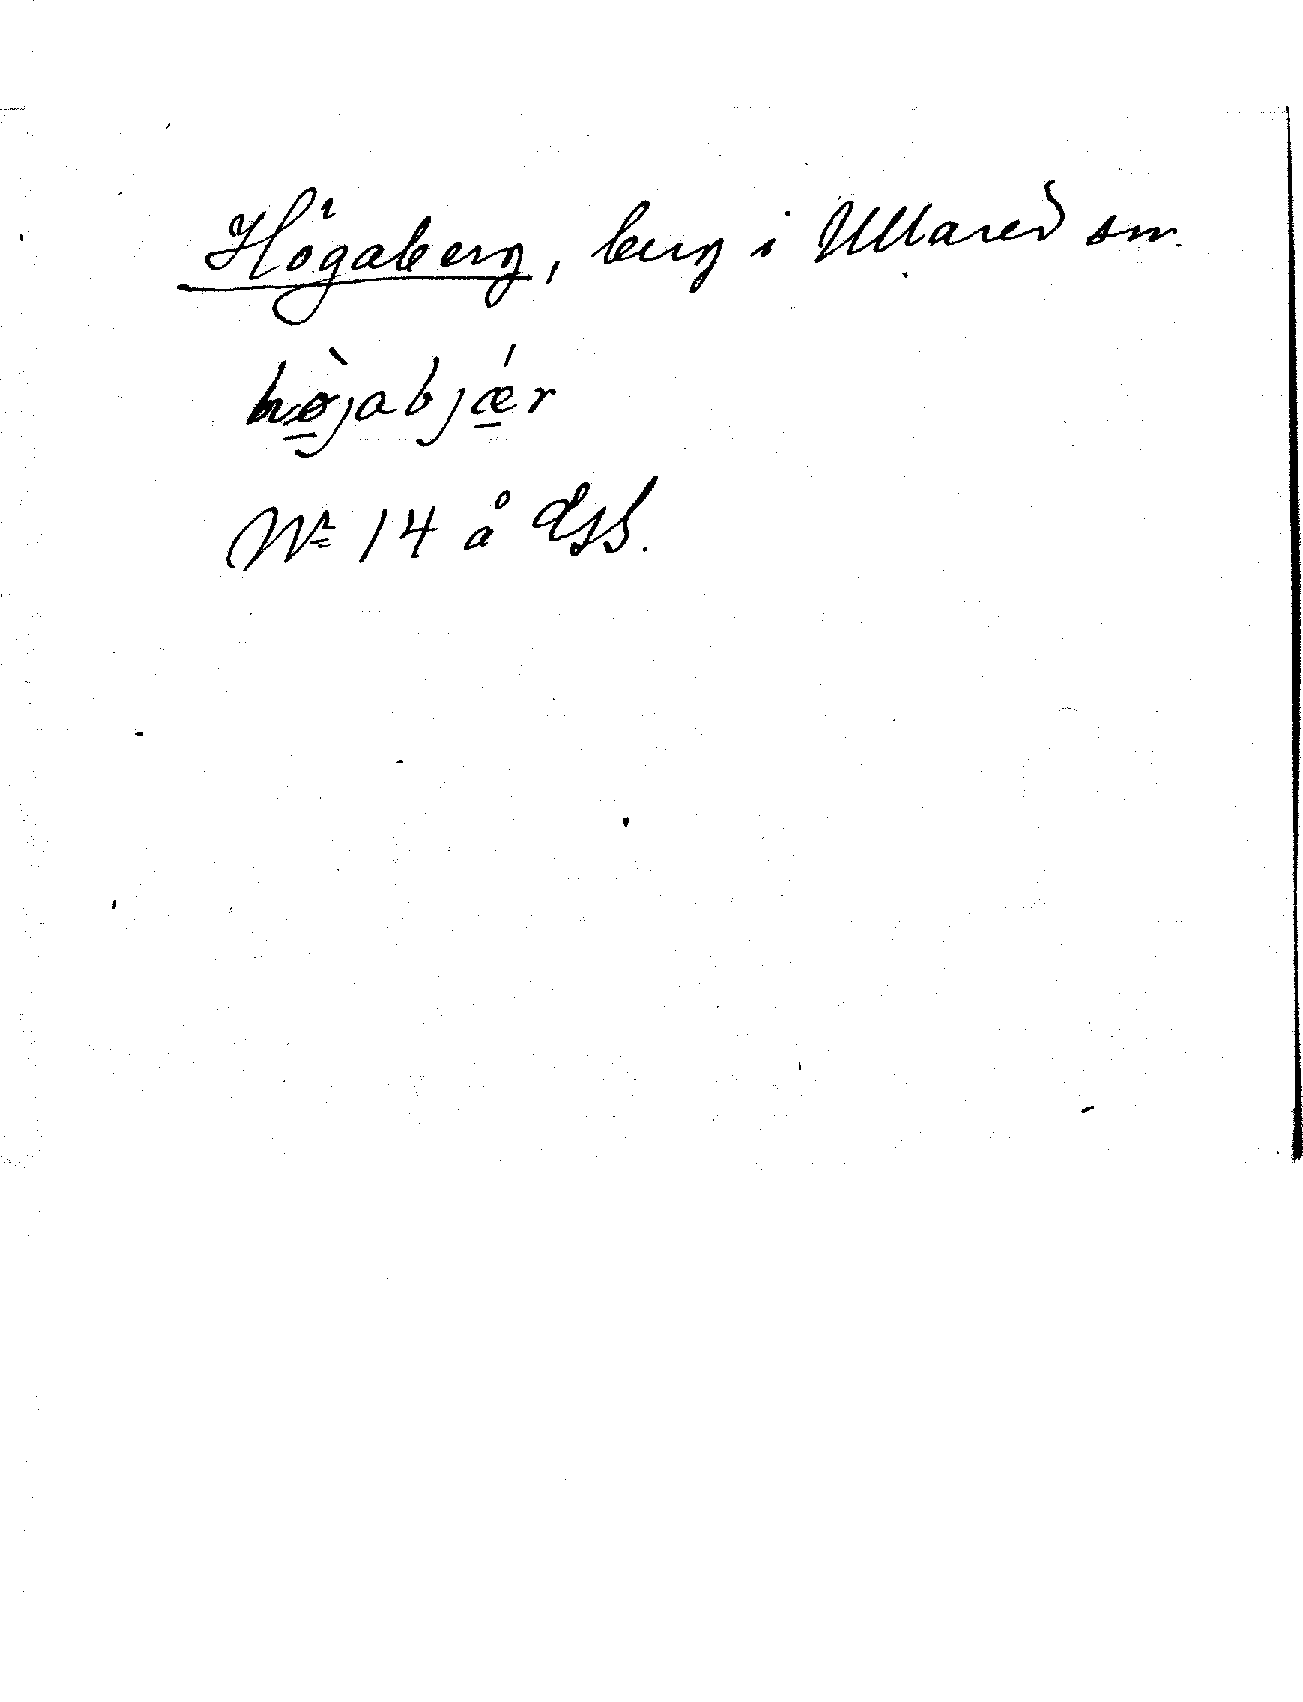 Högaberg, berg i Ullared sn.
hø̀jabjǽr
Nr 14 å dsb.